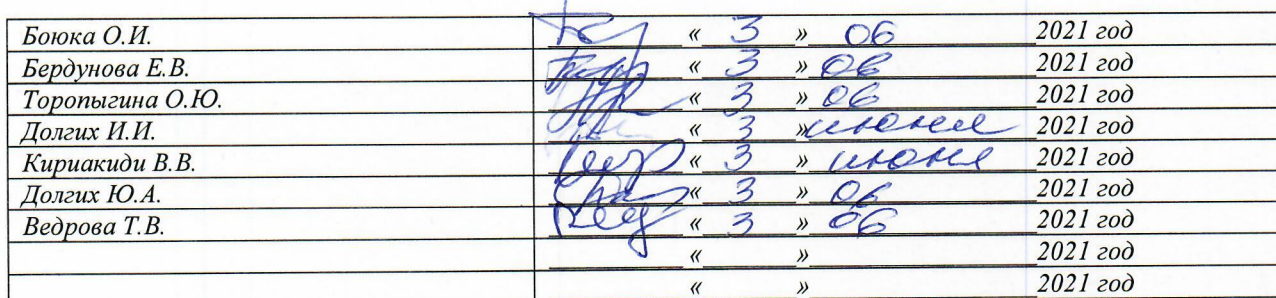 Боюка О.И. « 3 » 06 2021 год
Бердунова Е.В. « 3 » 06 2021 год
Торопыгина О.Ю. « 3 » 06 2021 год
Долгих И.И. « 3 » июня 2021 год
Кириакиди В.В. « 3 » июня 2021 год
Долгих Ю.А. « 3 » 06 2021 год
Ведрова Т.В. « 3 » 06 2021 год
« » 2021 год
« » 2021 год